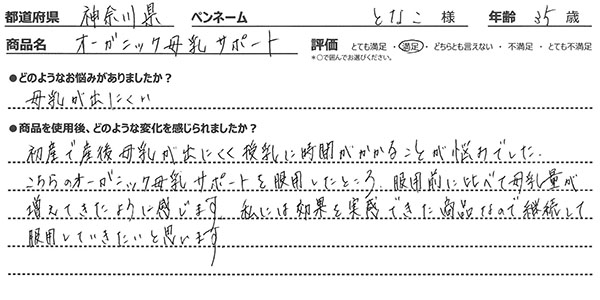 都道府県 神奈川県 ペンネーム となこ 様 年齢 35 歳
商品名 オーガニック母乳サポート 評価 とても満足 ・ 満足 ・ どちらとも言えない ・ 不満足 ・ とても不満足
*○で囲んでお選びください。
●どのようなお悩みがありましたか？
母乳が出にくい
●商品を使用後、どのような変化を感じられましたか？
初産で産後母乳が出にくく授乳に時間がかかることが悩みでした.
こちらのオーガニック母乳サポートを服用したところ、服用前に比べて母乳量が
増えてきたように感じます 私には効果を実感できた商品なので継続して
服用していきたいと思います